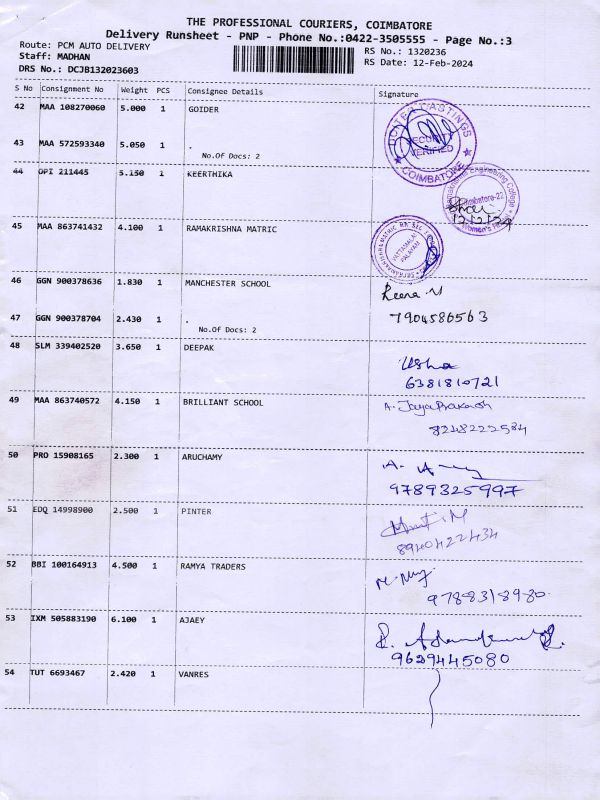 THE PROFESSIONAL COURIERS, COIMBATORE
Delivery Runsheet - PNP - Phone No.:0422-3505555 - Page No.:3
Route: PCM AUTO DELIVERY
RS No.: 1320236
Staff: MADHAN
RS Date: 12-Feb-2024
DRS No.: DCJB132023603
S No Consignment No Weight PCS Consignee Details Signature
42 MAA 108270060 5.000 1 GOIDER
43 MAA 572593340 5.050 1 .
No.Of Docs: 2
CASTINGS
SECURITY
VERIFIED
COIMBATORE
44 OPI 211445 5.150 1 KEERTHIKA
Engineering College
Coimbatore-22
Women's
45 MAA 863741432 4.100 1 RAMAKRISHNA MATRIC
46 GGN 900378636 1.830 1 MANCHESTER SCHOOL
Reena
47 GGN 900378704 2.430 1 .
No.Of Docs: 2
7904586563
48 SLM 339402520 3.650 1 DEEPAK
Usha
6381810721
49 MAA 863740572 4.150 1 BRILLIANT SCHOOL
A. JayaPrakash
8248222584
50 PRO 15908165 2.300 1 ARUCHAMY
9789325997
51 EDQ 14998900 2.500 1 PINTER
8940422434
52 BBI 100164913 4.500 1 RAMYA TRADERS
9788318980
53 IXM 505883190 6.100 1 AJAEY
9629445080
54 TUT 6693467 2.420 1 VANRES